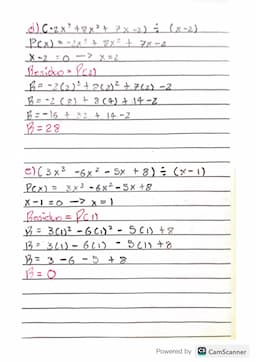 d) (-2x³ + 8x² + 7x - 2) ÷ (x - 2)
P(x) = -2x³ + 8x² + 7x - 2
x - 2 = 0 —> x = 2
Residuo = P(2)
R = -2(2)³ + 8(2)² + 7(2) - 2
R = -2(8) + 8(4) + 14 - 2
R = -16 + 32 + 14 - 2
R = 28
e) (3x³ - 6x² - 5x + 8) ÷ (x - 1)
P(x) = 3x³ - 6x² - 5x + 8
x - 1 = 0 —> x = 1
Residuo = P(1)
R = 3(1)³ - 6(1)² - 5(1) + 8
R = 3(1) - 6(1) - 5(1) + 8
R = 3 - 6 - 5 + 8
R = 0
Powered by CS CamScanner